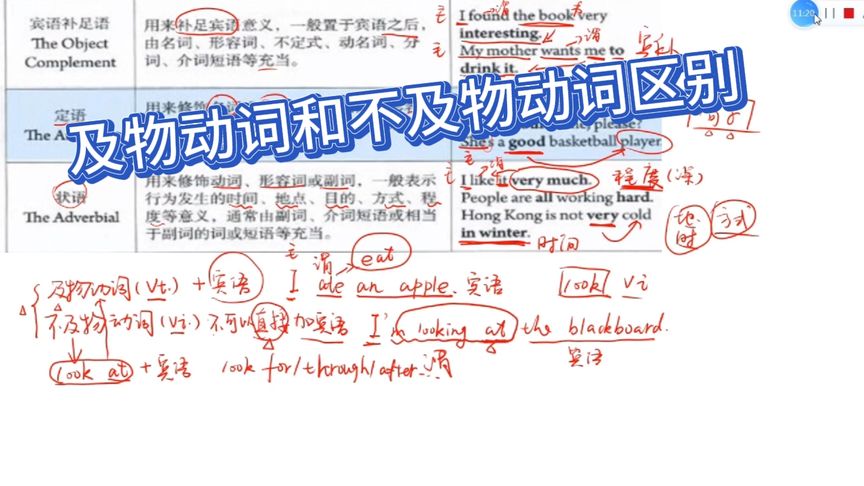 宾语补足语
The Object
Complement
用来补足宾语意义，一般置于宾语之后，
由名词、形容词、不定式、动名词、分
词、介词短语等充当。
I found the book very
interesting.
My mother wants me to
drink it.
主 谓
谓
及物动词和不及物动词区别
定语
The A
用来修饰
please?
She's a good basketball player
状语
The Adverbial
用来修饰动词、形容词或副词，一般表示
行为发生的时间、地点、目的、方式、程
度等意义，通常由副词、介词短语或相当
于副词的词或短语等充当。
主 谓
I like it very much.
People are all working hard.
Hong Kong is not very cold
in winter.
程度(深)
地
时
方式
时间
主 谓 eat
及物动词(vt.) + 宾语 I ate an apple. 宾语 look vi
不及物动词(vi.) 不可以直接加宾语 I'm looking at the blackboard.
宾语
look at + 宾语 look for/through/after 谓
11:20